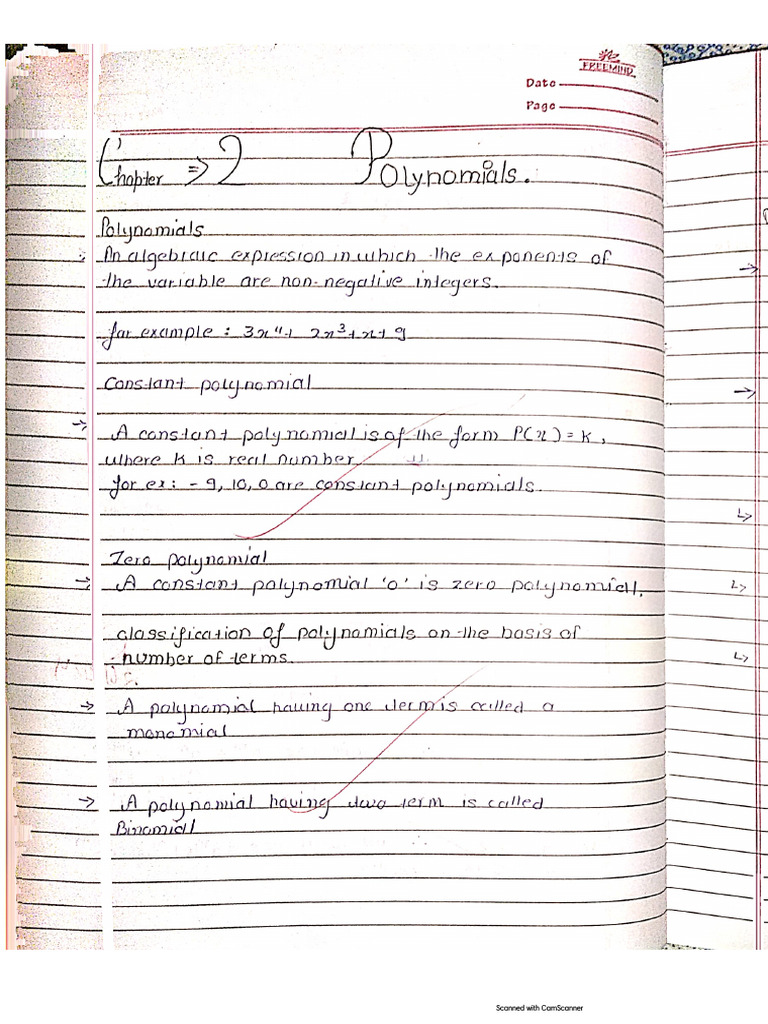 FREEMIND
Date
Page
Chapter ⇒ 2 Polynomials.
Polynomials
An algebraic expression in which the exponents of
the variable are non-negative integers.
for example : 3x⁴+ 2x³+x+9
Constant polynomial
→ A constant polynomial is of the form P(x) = K,
where K is real number
for ex: - 9, 10, 0 are constant polynomials.
Zero polynomial
→ A constant polynomial '0' is zero polynomial.
classification of polynomials on the basis of
number of terms.
→ A polynomial having one term is called a
monomial
→ A polynomial having two term is called
Binomial
Scanned with CamScanner